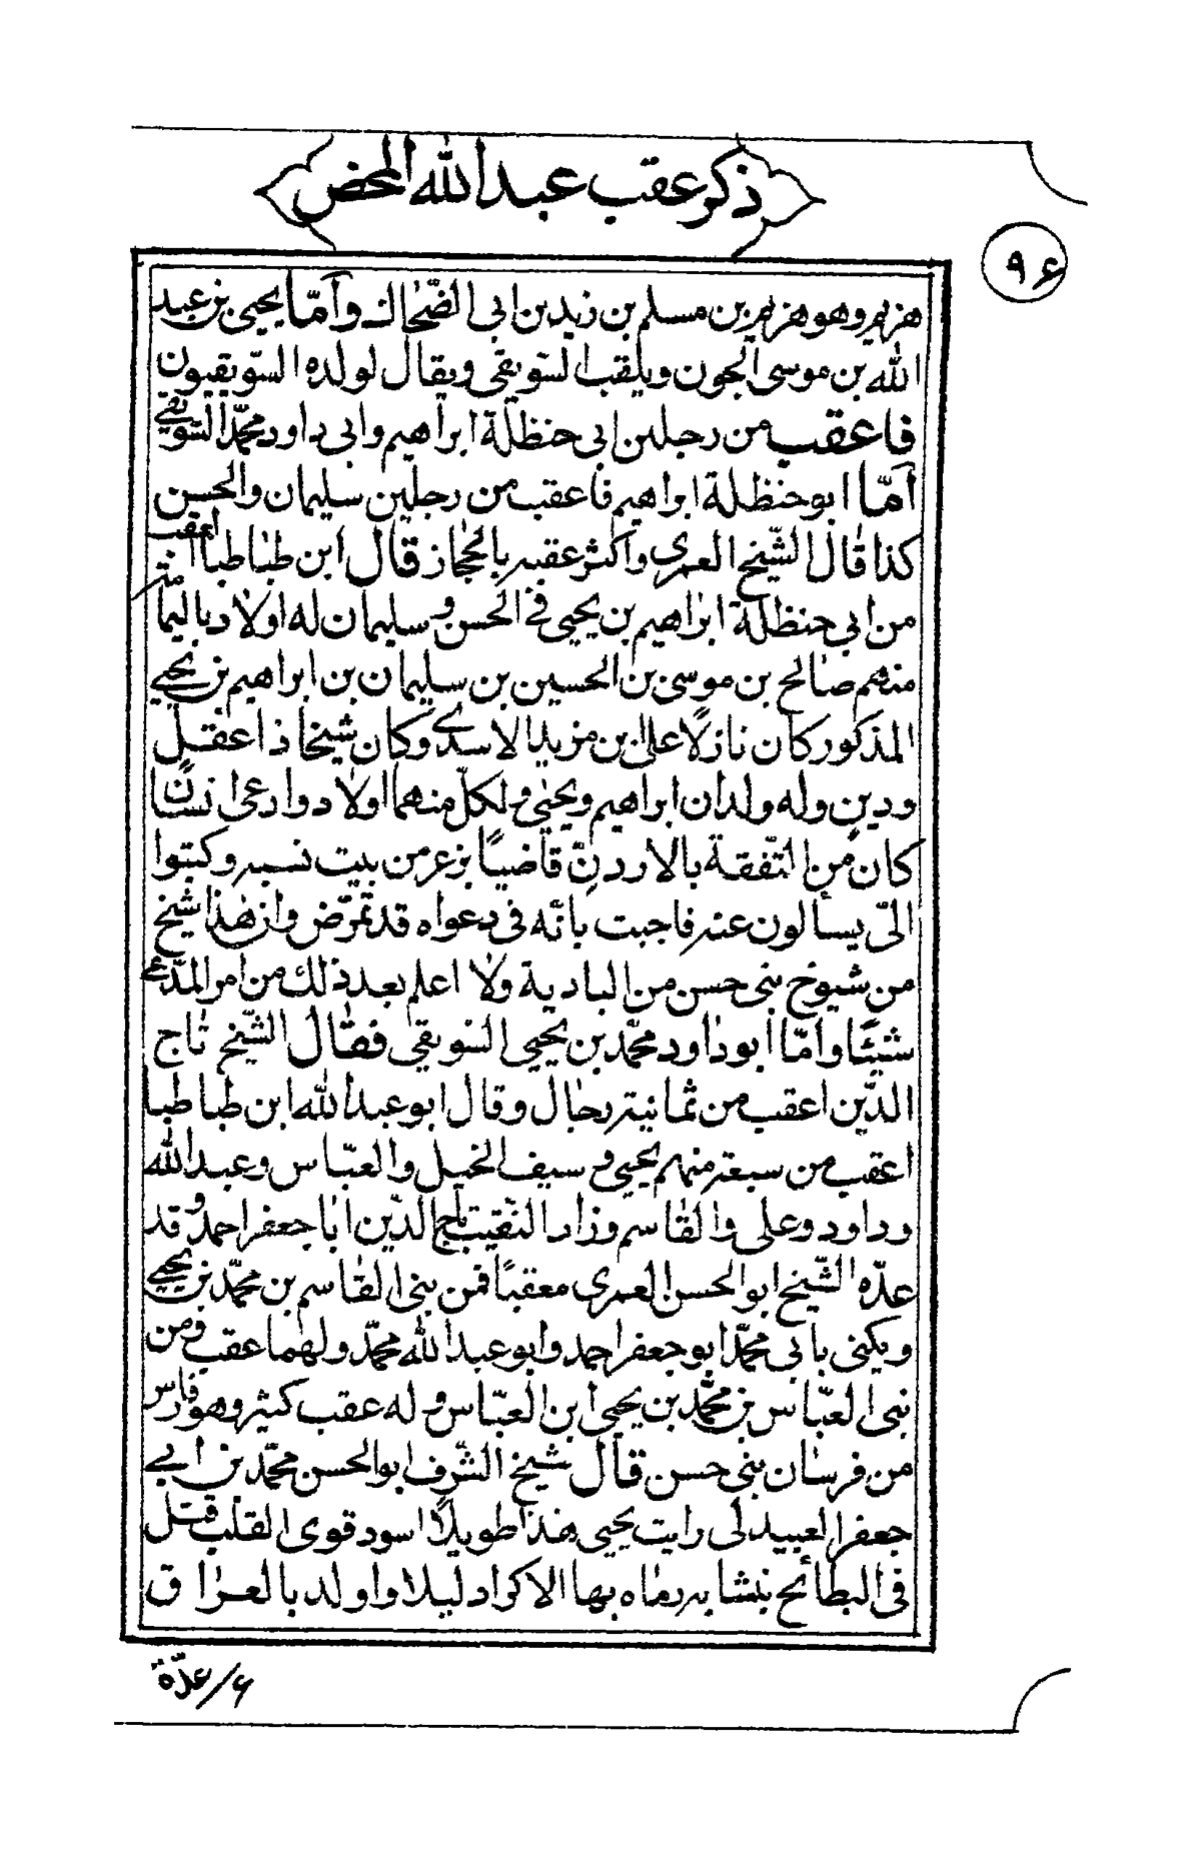 ذكر عقب عبد الله المحض
٩۶
هزيم وهو هزيم بن مسلم بن زيد بن ابى الضّحاك وأمّا يحيى بن عبد
الله بن موسى الجون ويلقب السّويقى ويقال لولده السّويقيون
فاعقب من رجلين ابى حنظلة ابراهيم وابى داود محمّد السّويقى
أمّا ابو حنظلة ابراهيم فاعقب من رجلين سليمان والحسن
كذا قال الشّيخ العمرى واكثر عقبه بالحجاز قال ابن طباطبا اعقب
من ابى حنظلة ابراهيم بن يحيى فى الحسن و سليمان له اولاد باليمامة
منهم صالح بن موسى بن الحسين بن سليمان بن ابراهيم بن يحيى
المذكور كان نازلاً على بن مزيد الاسدى وكان شيخا ذا عقل
ودين وله ولدان ابراهيم ويحيى ولكلّ منهما اولاد وادعى انسان
كان من التّفقة بالاردن قاضيًا بزعر من بيت نسبه وكتبوا
الىّ يسألون عنه فاجبت بانّه فى دعواه قد تمرّض وان هذا شيخ
من شيوخ بنى حسن من البادية ولا اعلم بعد ذلك من امر المدّعى
شيئًا وامّا ابو داود محمّد بن يحيى السّويقى فقال الشّيخ تاج
الدّين اعقب من ثمانية رجال وقال ابو عبد الله ابن طباطبا
اعقب من سبعة منهم يحيى و سيف الخيل والعبّاس وعبد الله
وداود وعلى والقاسم وزاد النّقيب تاج الدّين ابا جعفر احمد وقد
عدّه الشّيخ ابو الحسن العمرى معقبًا فمن بنى القاسم بن محمّد بن يحيى
ويكنى بابى محمّد ابو جعفر احمد وابو عبد الله محمّد ولهما عقب ومن
بنى العبّاس بن محمّد بن يحيى ابن العبّاس وله عقب كثير وهو فارس
من فرسان بنى حسن قال شيخ الشّرف ابو الحسن محمّد بن ابى
جعفر العبيدلى رايت يحيى هذا طويلاً اسود قوى القلب قتل
فى البطائح بنشابه رماه بها الاكراد ليلا واولد بالعراق
۶/عدّة